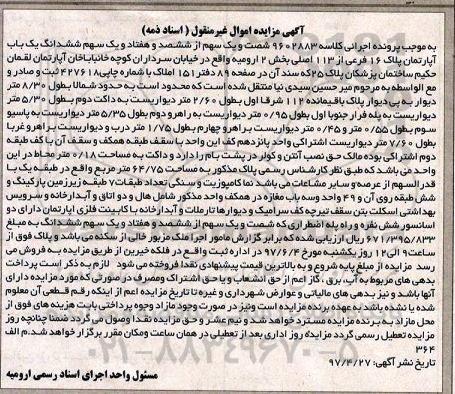 آگهی مزایده اموال غیرمنقول ( اسناد ذمه)
به موجب پرونده اجرائی کلاسه ۹۶۰۲۸۸۳ شصت و یک سهم از ششصد و هفتاد و یک سهم ششدانگ یک باب
آپارتمان پلاک ۱۶ فرعی از ۱۱۳ اصلی بخش ۲ ارومیه واقع در خیابان سرداران کوچه خانباباخان آپارتمان لقمان
حکیم ساختمان پزشکان پلاک ۲۵که سند آن در صفحه ۸۹ دفتر ۱۵۱ املاک با شماره چاپی ۴۲۷۶۱۸ ثبت و صادر و
مع الواسطه به مرحوم میر حسین سیدی نیا منتقل شده است که محدود است به حدود شمالا بطول ۸/۳۰ متر
دیوار به پی دیوار پلاک باقیمانده ۱۱۳ شرقا اول بطول ۲/۶۰ متر دیواریست به داکت دوم بطول ۵/۳۰ متر
دیواریست به پله فرار جنوبا اول بطول ۰/۹۵ متر دیواریست به راهرو دوم بطول ۵/۳۵ متر دیواریست به پاسیو
سوم بطول ۰/۵۵ متر و ۰/۴۵ متر دیواریست براهرو چهارم بطول ۱/۷۵ متر درب و دیواریست براهرو غربا
بطول ۷/۶۰ متر دیواریست اشتراکی واحد پانزدهم کف این واحد با سقف طبقه همکف و سقف آن با کف طبقه
دوم اشتراکی بوده مالک حق نصب آنتن و کولر در پشت بام را دارد و داکت به مساحت ۰/۱۸ متر مربع ماط در این
واحد می باشد که طبق نظر کارشناس رسمی پلاک مذکور به مساحت ۶۴/۷۵ متر مربع واقع در طبقه یک با
قدرالسهم از عرصه و سایر مشاعات می باشد نما کامپوزیت و سنگی تعداد طبقات۷ طبقه زیرزمین پارکینگ و
شش طبقه روی آن و ۴۹ واحد و سه باب مغازه در همکف واحد مذکور شامل هال و دو اتاق و آبدارخانه و سرویس
بهداشتی اسکلت بتن سقف تیرچه کف سرامیک و دیوارها تارملات و آبدارخانه با کابینت فلزی آپارتمان دارای دو
آسانسور شش نفره و راه پله اضطراری که شصت و یک سهم از ششصد و هفتاد و یک سهم ششدانگ به مبلغ
۶۷۱/۳۹۵/۸۳۳ ریال ارزیابی شده که برابر گزارش مامور اجرا ملک مزبور خالی از سکنه می باشد و پلاک فوق از
ساعت۹ الی۱۲ روز یکشنبه مورخ ۹۷/۶/۴ در اداره ثبت واقع در فلکه خیرین از طریق مزایده به فروش می
رسد مزایده از مبلغ پایه شروع و به بالاترین قیمت پیشنهادی نقدا فروخته می شود لازم به ذکر است پرداخت
بدهی های مربوط به آب، برق ، گاز اعم از حق انشعاب و یا حق اشتراک و مصرف در صورتی که مورد مزایده دارای
آنها باشد و نیز بدهی های مالیاتی و عوارض شهرداری و غیره تا تاریخ مزایده اعم از اینکه رقم قطعی آن معلوم
شده یا نشده باشد بعهده برنده مزایده است ونیز در صورت وجود مازاد وجوه پرداختی بابت هزینه های فوق از
محل مازاد به برنده مزایده مسترد خواهد شد و نیم عشر و حق مزایده نقدا وصول می گردد ضمنا چنانچه روز
مزایده تعطیل رسمی گردد مزایده روز اداری بعد از تعطیلی در همان ساعت ومکان مقرر برگزار خواهد شد.م الف
۳۶۴
تاریخ نشر آگهی: ۹۷/۴/۲۷
مسئول واحد اجرای اسناد رسمی ارومیه